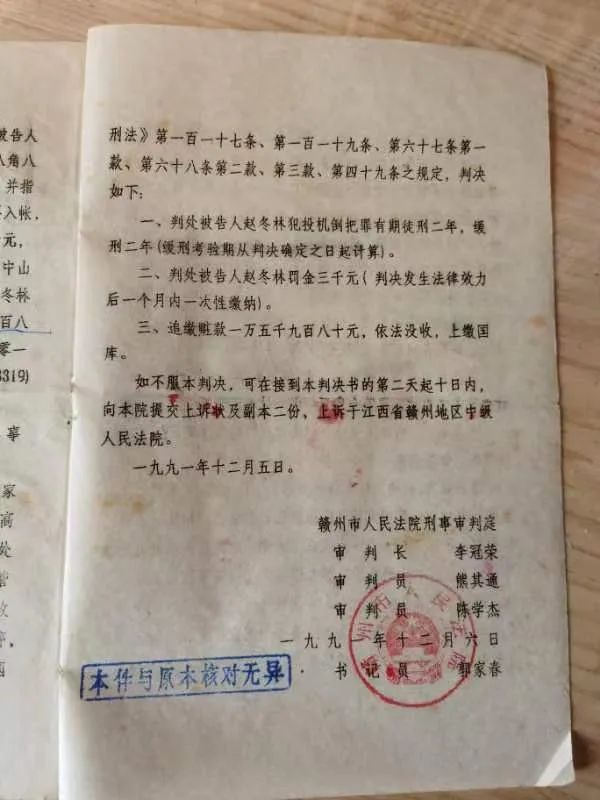 被告人
八角八
并指
入帐,
元,
中山
冬林
百八
零一
3319)
事
家
高
处
刑法》第一百一十七条、第一百一十九条、第六十七条第一
款、第六十八条第二款、第三款、第四十九条之规定,判决
如下:
一、判处被告人赵冬林犯投机倒把罪有期徒刑二年,缓
刑二年(缓刑考验期从判决确定之日起计算)。
二、判处被告人赵冬林罚金三千元(判决发生法律效力
后一个月内一次性缴纳)。
三、追缴赃款一万五千九百八十元,依法没收,上缴国
库。
如不服本判决,可在接到本判决书的第二天起十日内,
向本院提交上诉状及副本二份,上诉于江西省赣州地区中级
人民法院。
一九九一年十二月五日。
赣州市人民法院刑事审判庭
审判长 李冠荣
审判员 熊其通
审判员 陈学杰
一九九一年十二月六日
书记员 郭家春
本件与原本核对无异